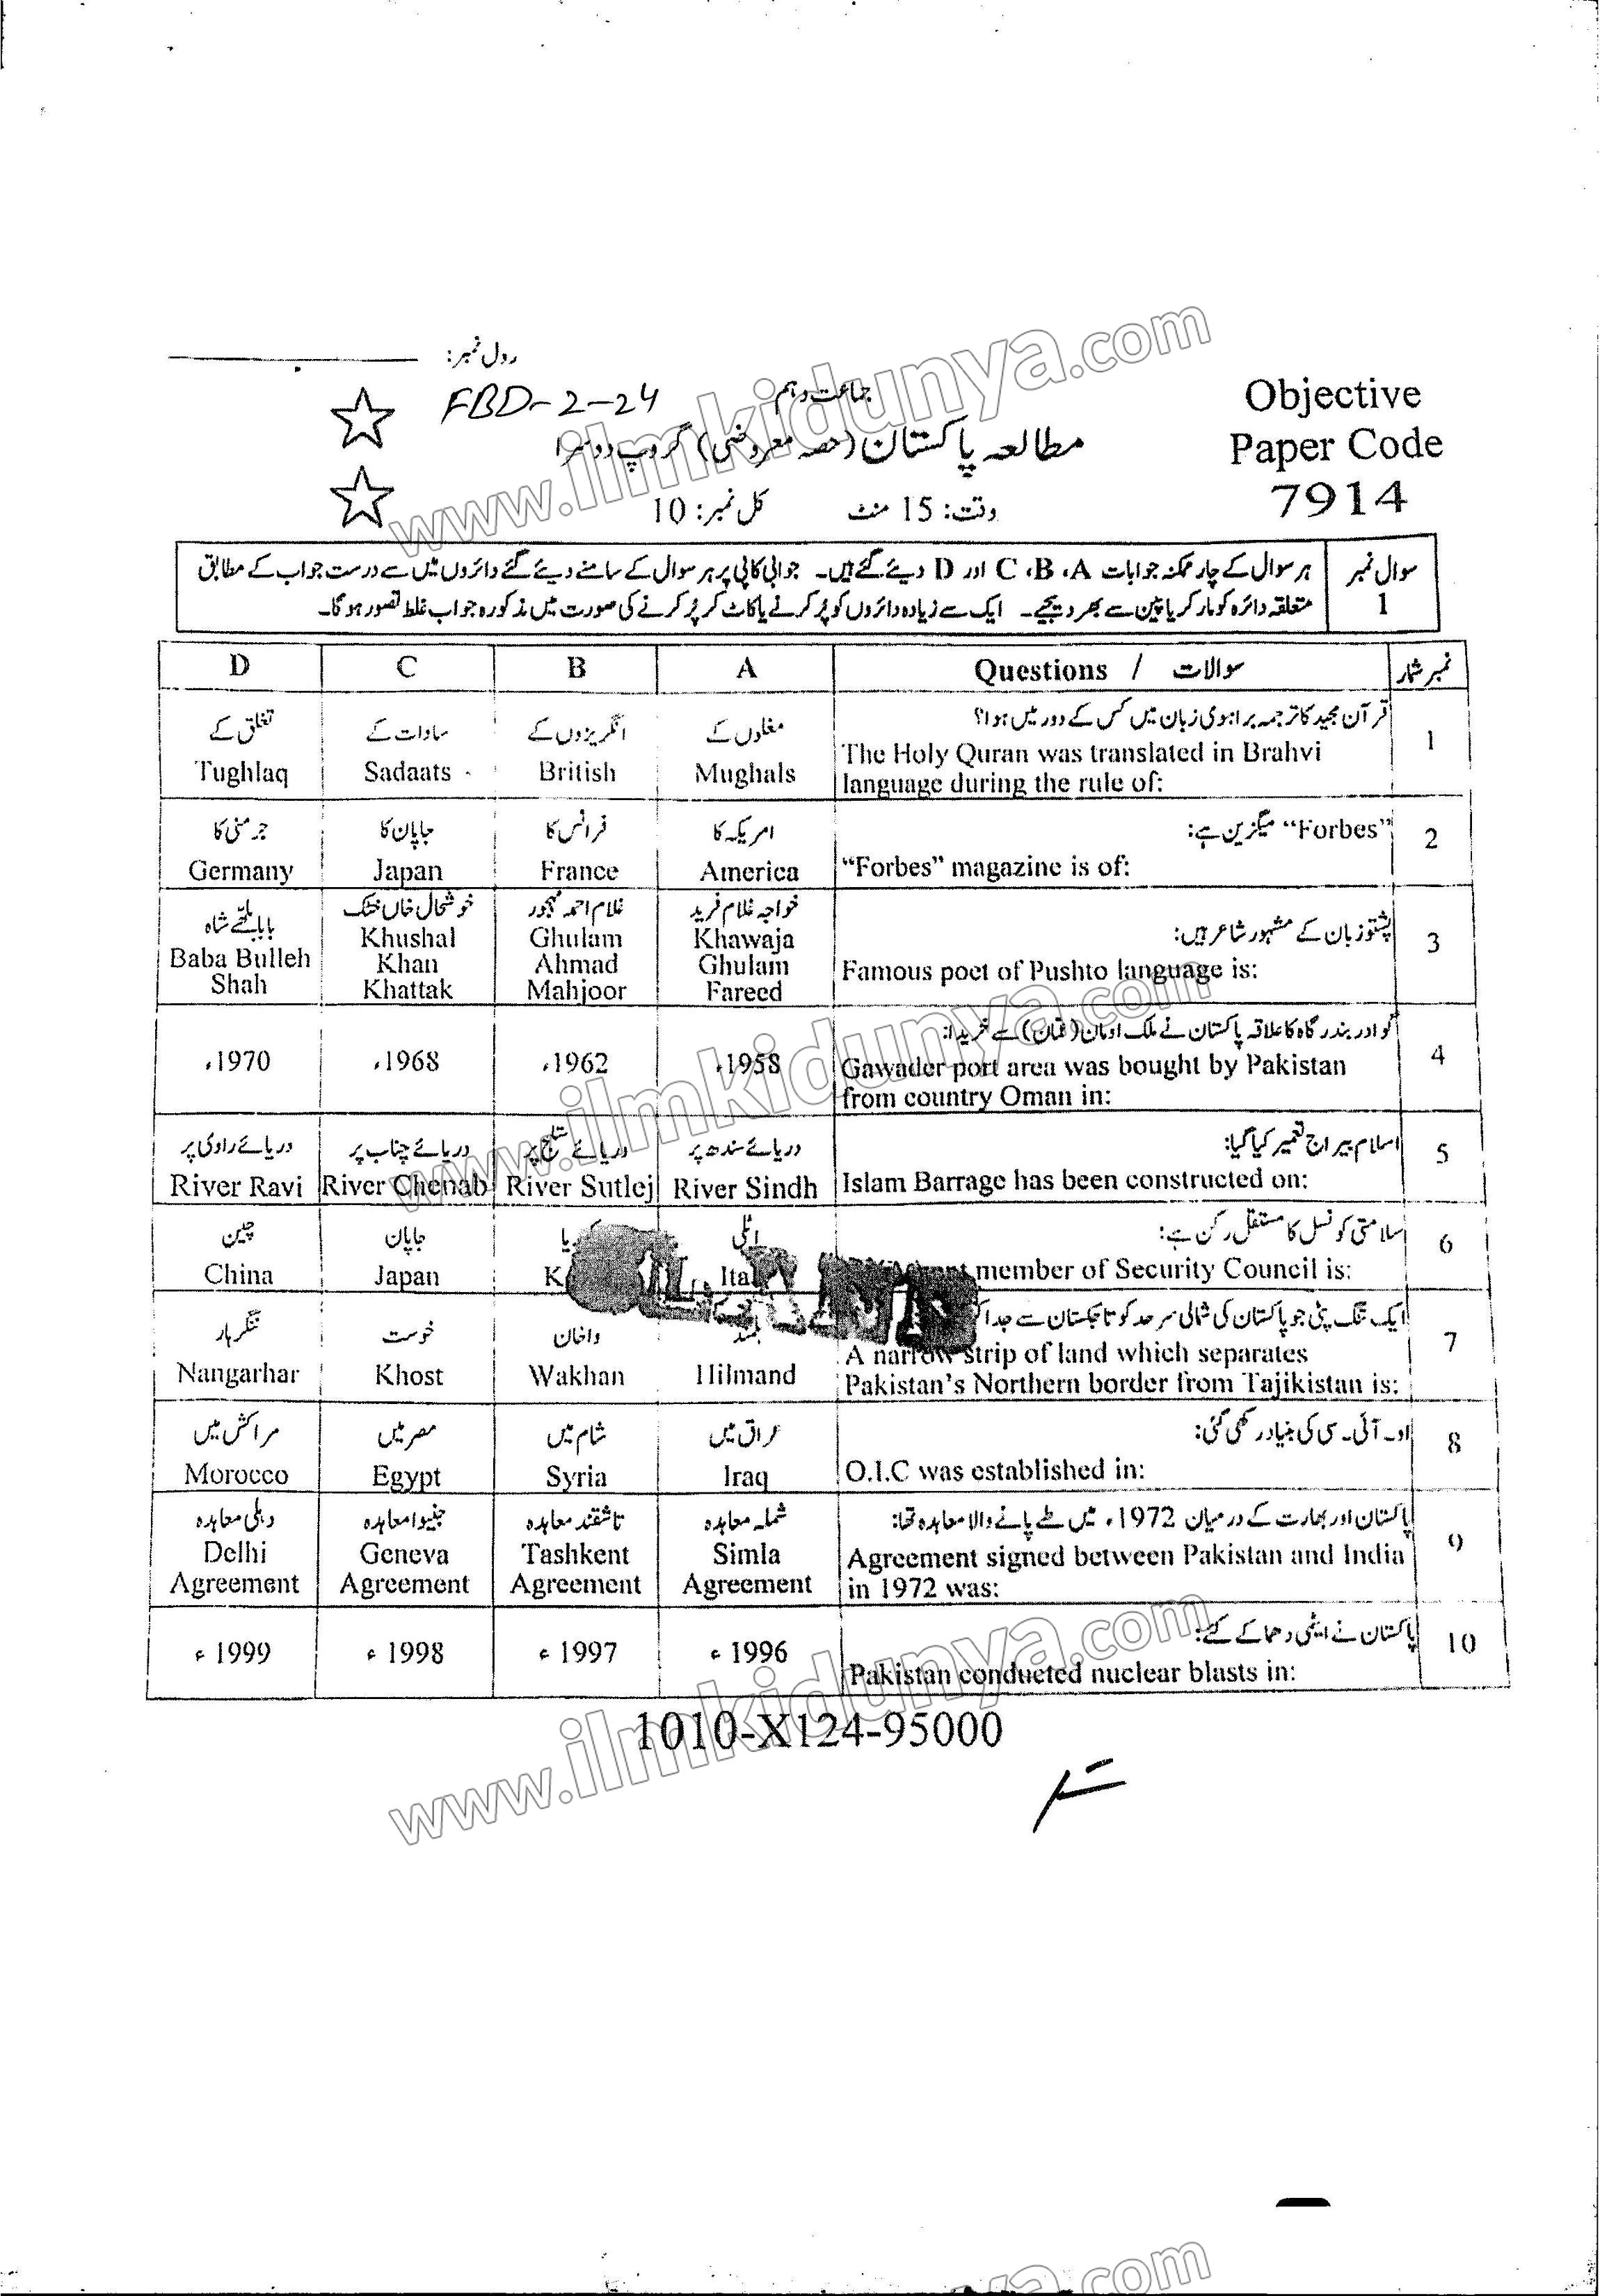 رول نمبر:
FBD-2-24
جماعت دہم
مطالعہ پاکستان (حصہ معروضی) گروپ دوسرا
وقت: 15 منٹ کل نمبر: 10
Objective
Paper Code
7914
سوال نمبر 1
ہر سوال کے چار ممکنہ جوابات A، B، C اور D دیئے گئے ہیں۔ جوابی کاپی پر ہر سوال کے سامنے دیئے گئے دائروں میں سے درست جواب کے مطابق
متعلقہ دائرہ کو مارکر یا پین سے بھر دیجیے۔ ایک سے زیادہ دائروں کو پُر کرنے یا کاٹ کر پُر کرنے کی صورت میں مذکورہ جواب غلط تصور ہو گا۔
نمبر شمار
سوالات / Questions
A
B
C
D
1
قرآن مجید کا ترجمہ براہوی زبان میں کس کے دور میں ہوا؟
The Holy Quran was translated in Brahvi
language during the rule of:
مغلوں کے
Mughals
انگریزوں کے
British
سادات کے
Sadaats
تغلق کے
Tughlaq
2
"Forbes" میگزین ہے:
"Forbes" magazine is of:
امریکہ کا
America
فرانس کا
France
جاپان کا
Japan
جرمنی کا
Germany
3
پشتو زبان کے مشہور شاعر ہیں:
Famous poet of Pushto language is:
خواجہ غلام فرید
Khawaja
Ghulam
Fareed
غلام احمد مہجور
Ghulam
Ahmad
Mahjoor
خوشحال خاں خٹک
Khushal
Khan
Khattak
بابا بلھے شاہ
Baba Bulleh
Shah
4
گوادر بندرگاہ کا علاقہ پاکستان نے ملک اومان (عُمان) سے خریدا:
Gawader port area was bought by Pakistan
from country Oman in:
1958ء
1962ء
1968ء
1970ء
5
اسلام بیراج تعمیر کیا گیا:
Islam Barrage has been constructed on:
دریائے سندھ پر
River Sindh
دریائے ستلج پر
River Sutlej
دریائے چناب پر
River Chenab
دریائے راوی پر
River Ravi
6
سلامتی کونسل کا مستقل رکن ہے:
member of Security Council is:
اٹلی
جاپان
Japan
چین
China
7
ایک تنگ پٹی جو پاکستان کی شمالی سرحد کو تاجکستان سے جدا
A narrow strip of land which separates
Pakistan's Northern border from Tajikistan is:
Hilmand
واخان
Wakhan
خوست
Khost
ننگرہار
Nangarhar
8
او۔ آئی۔ سی کی بنیاد رکھی گئی:
O.I.C was established in:
عراق میں
Iraq
شام میں
Syria
مصر میں
Egypt
مراکش میں
Morocco
9
پاکستان اور بھارت کے درمیان 1972ء میں طے پانے والا معاہدہ تھا:
Agreement signed between Pakistan and India
in 1972 was:
شملہ معاہدہ
Simla
Agreement
تاشقند معاہدہ
Tashkent
Agreement
جنیوا معاہدہ
Geneva
Agreement
دہلی معاہدہ
Delhi
Agreement
10
پاکستان نے ایٹمی دھماکے کئے:
Pakistan conducted nuclear blasts in:
1996 ء
1997 ء
1998 ء
1999 ء
1010-X124-95000
www.ilmkidunya.com
www.ilmkidunya.com
www.ilmkidunya.com